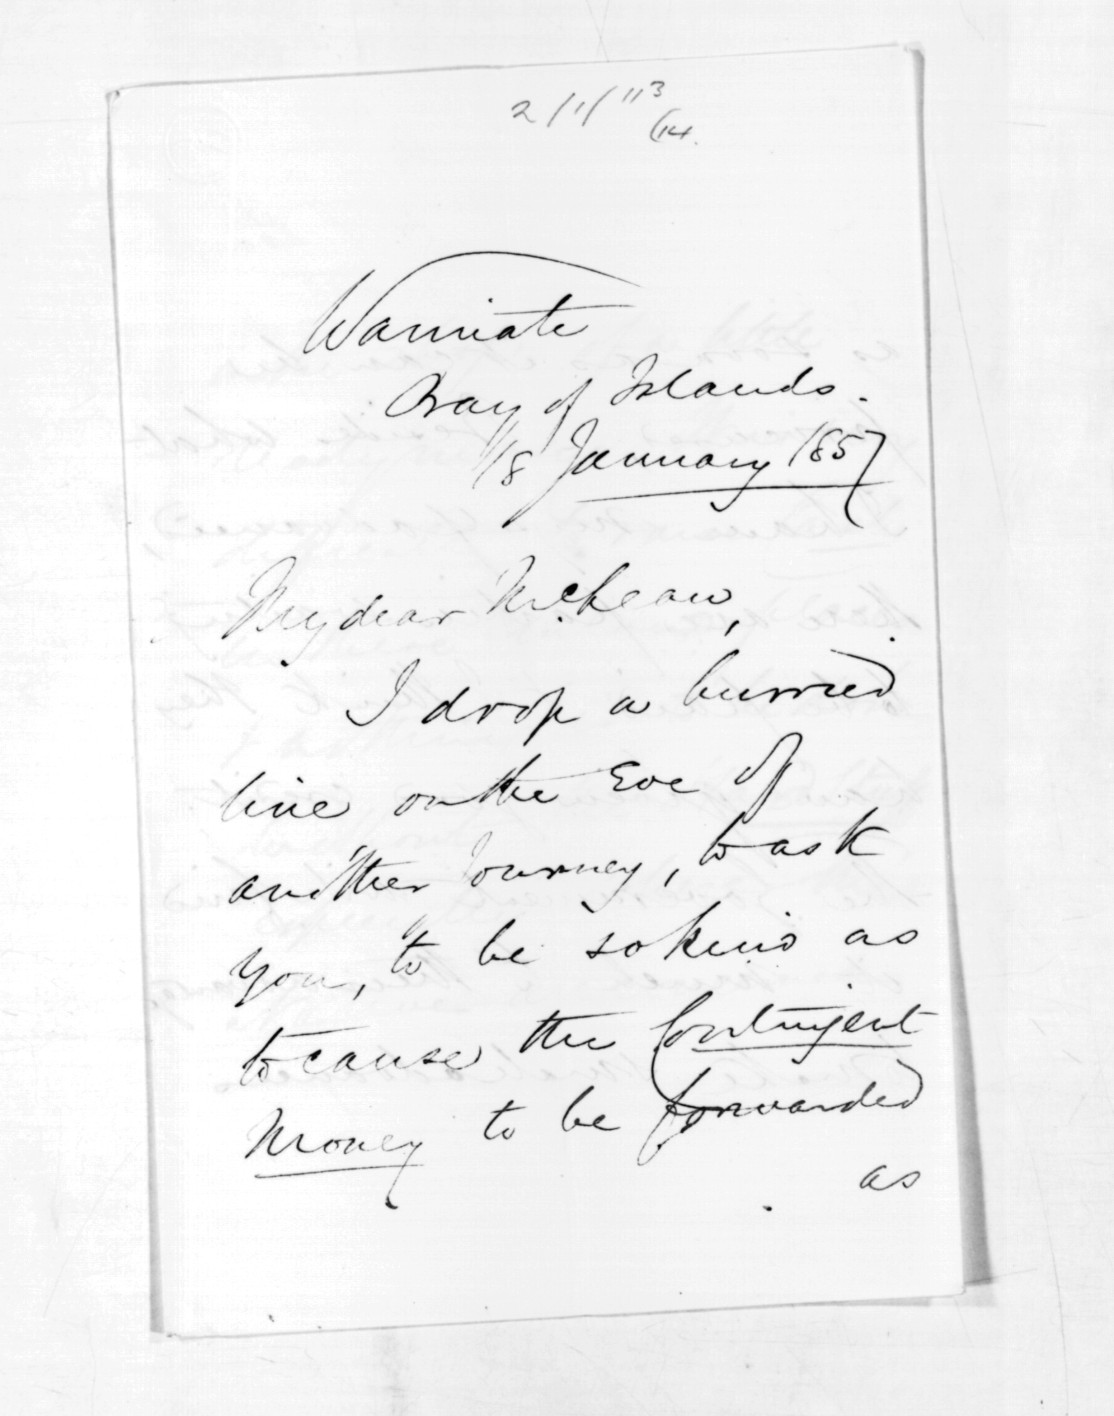 2/1/113
(14.
Wamiate
Bay of Islands.
18 January 1857
My dear McLean,
I drop a hurried
line on the Eve of
another Journey, to ask
you, to be so kind as
to cause the Contingent
Money to be forwarded
as